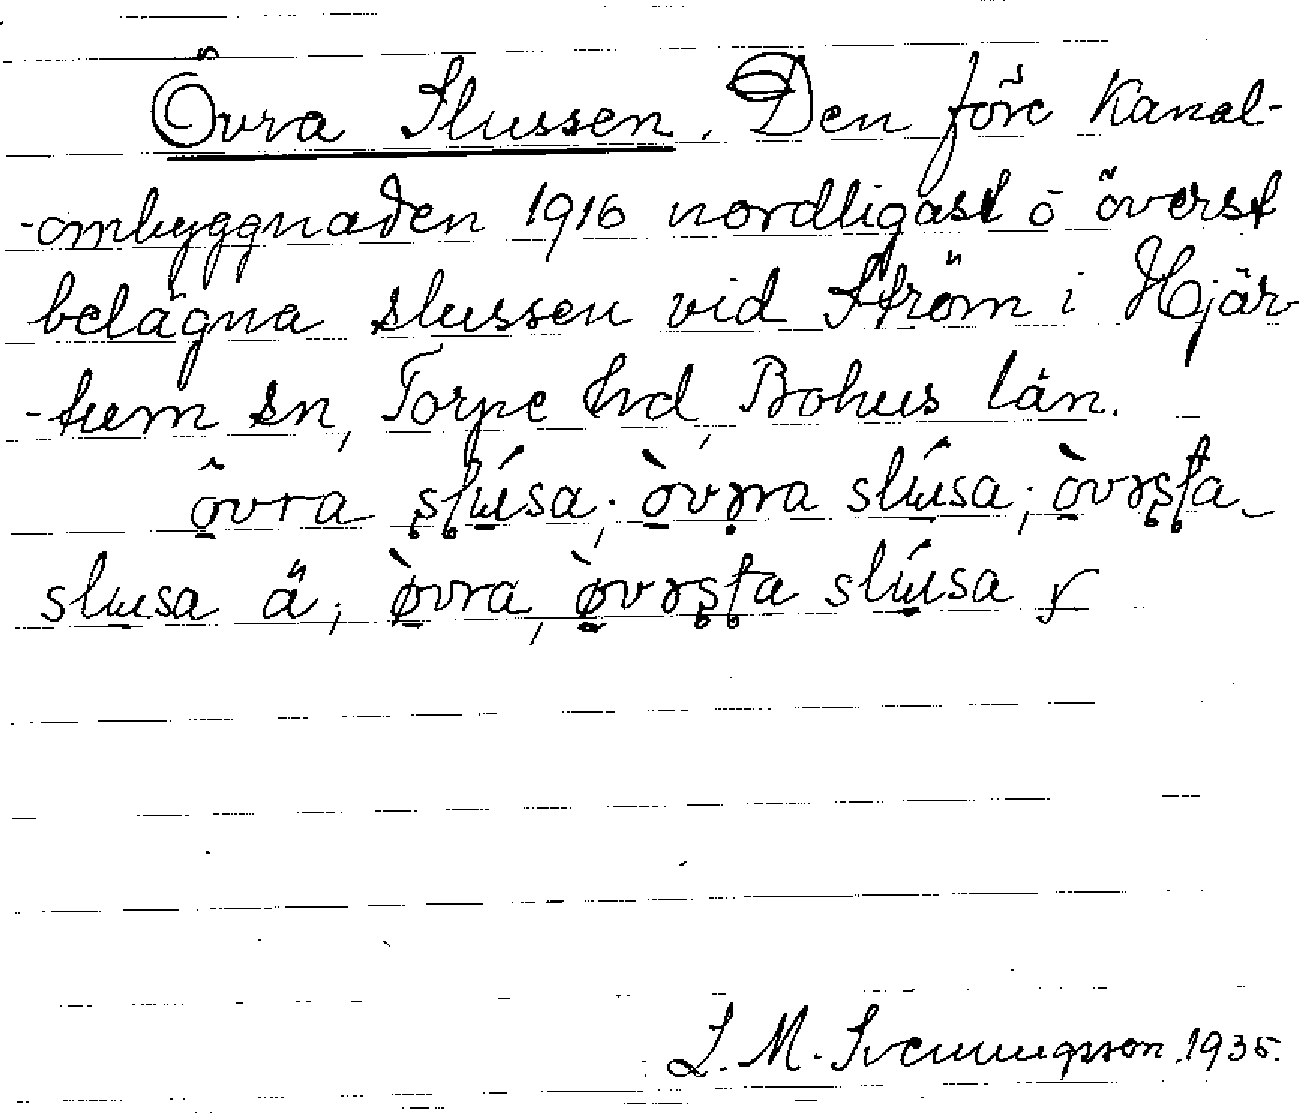 Övra Slussen. Den före Kanal-
-ombyggnaden 1916 nordligast o överst
belägna slussen vid Ström i Hjär-
-tum sn, Torpe hd, Bohus län.
övra slusa; òvra slúsa; òvrsta
slusa ä; òvra, òvrsta slúsa
S. M. Svenungsson. 1935.